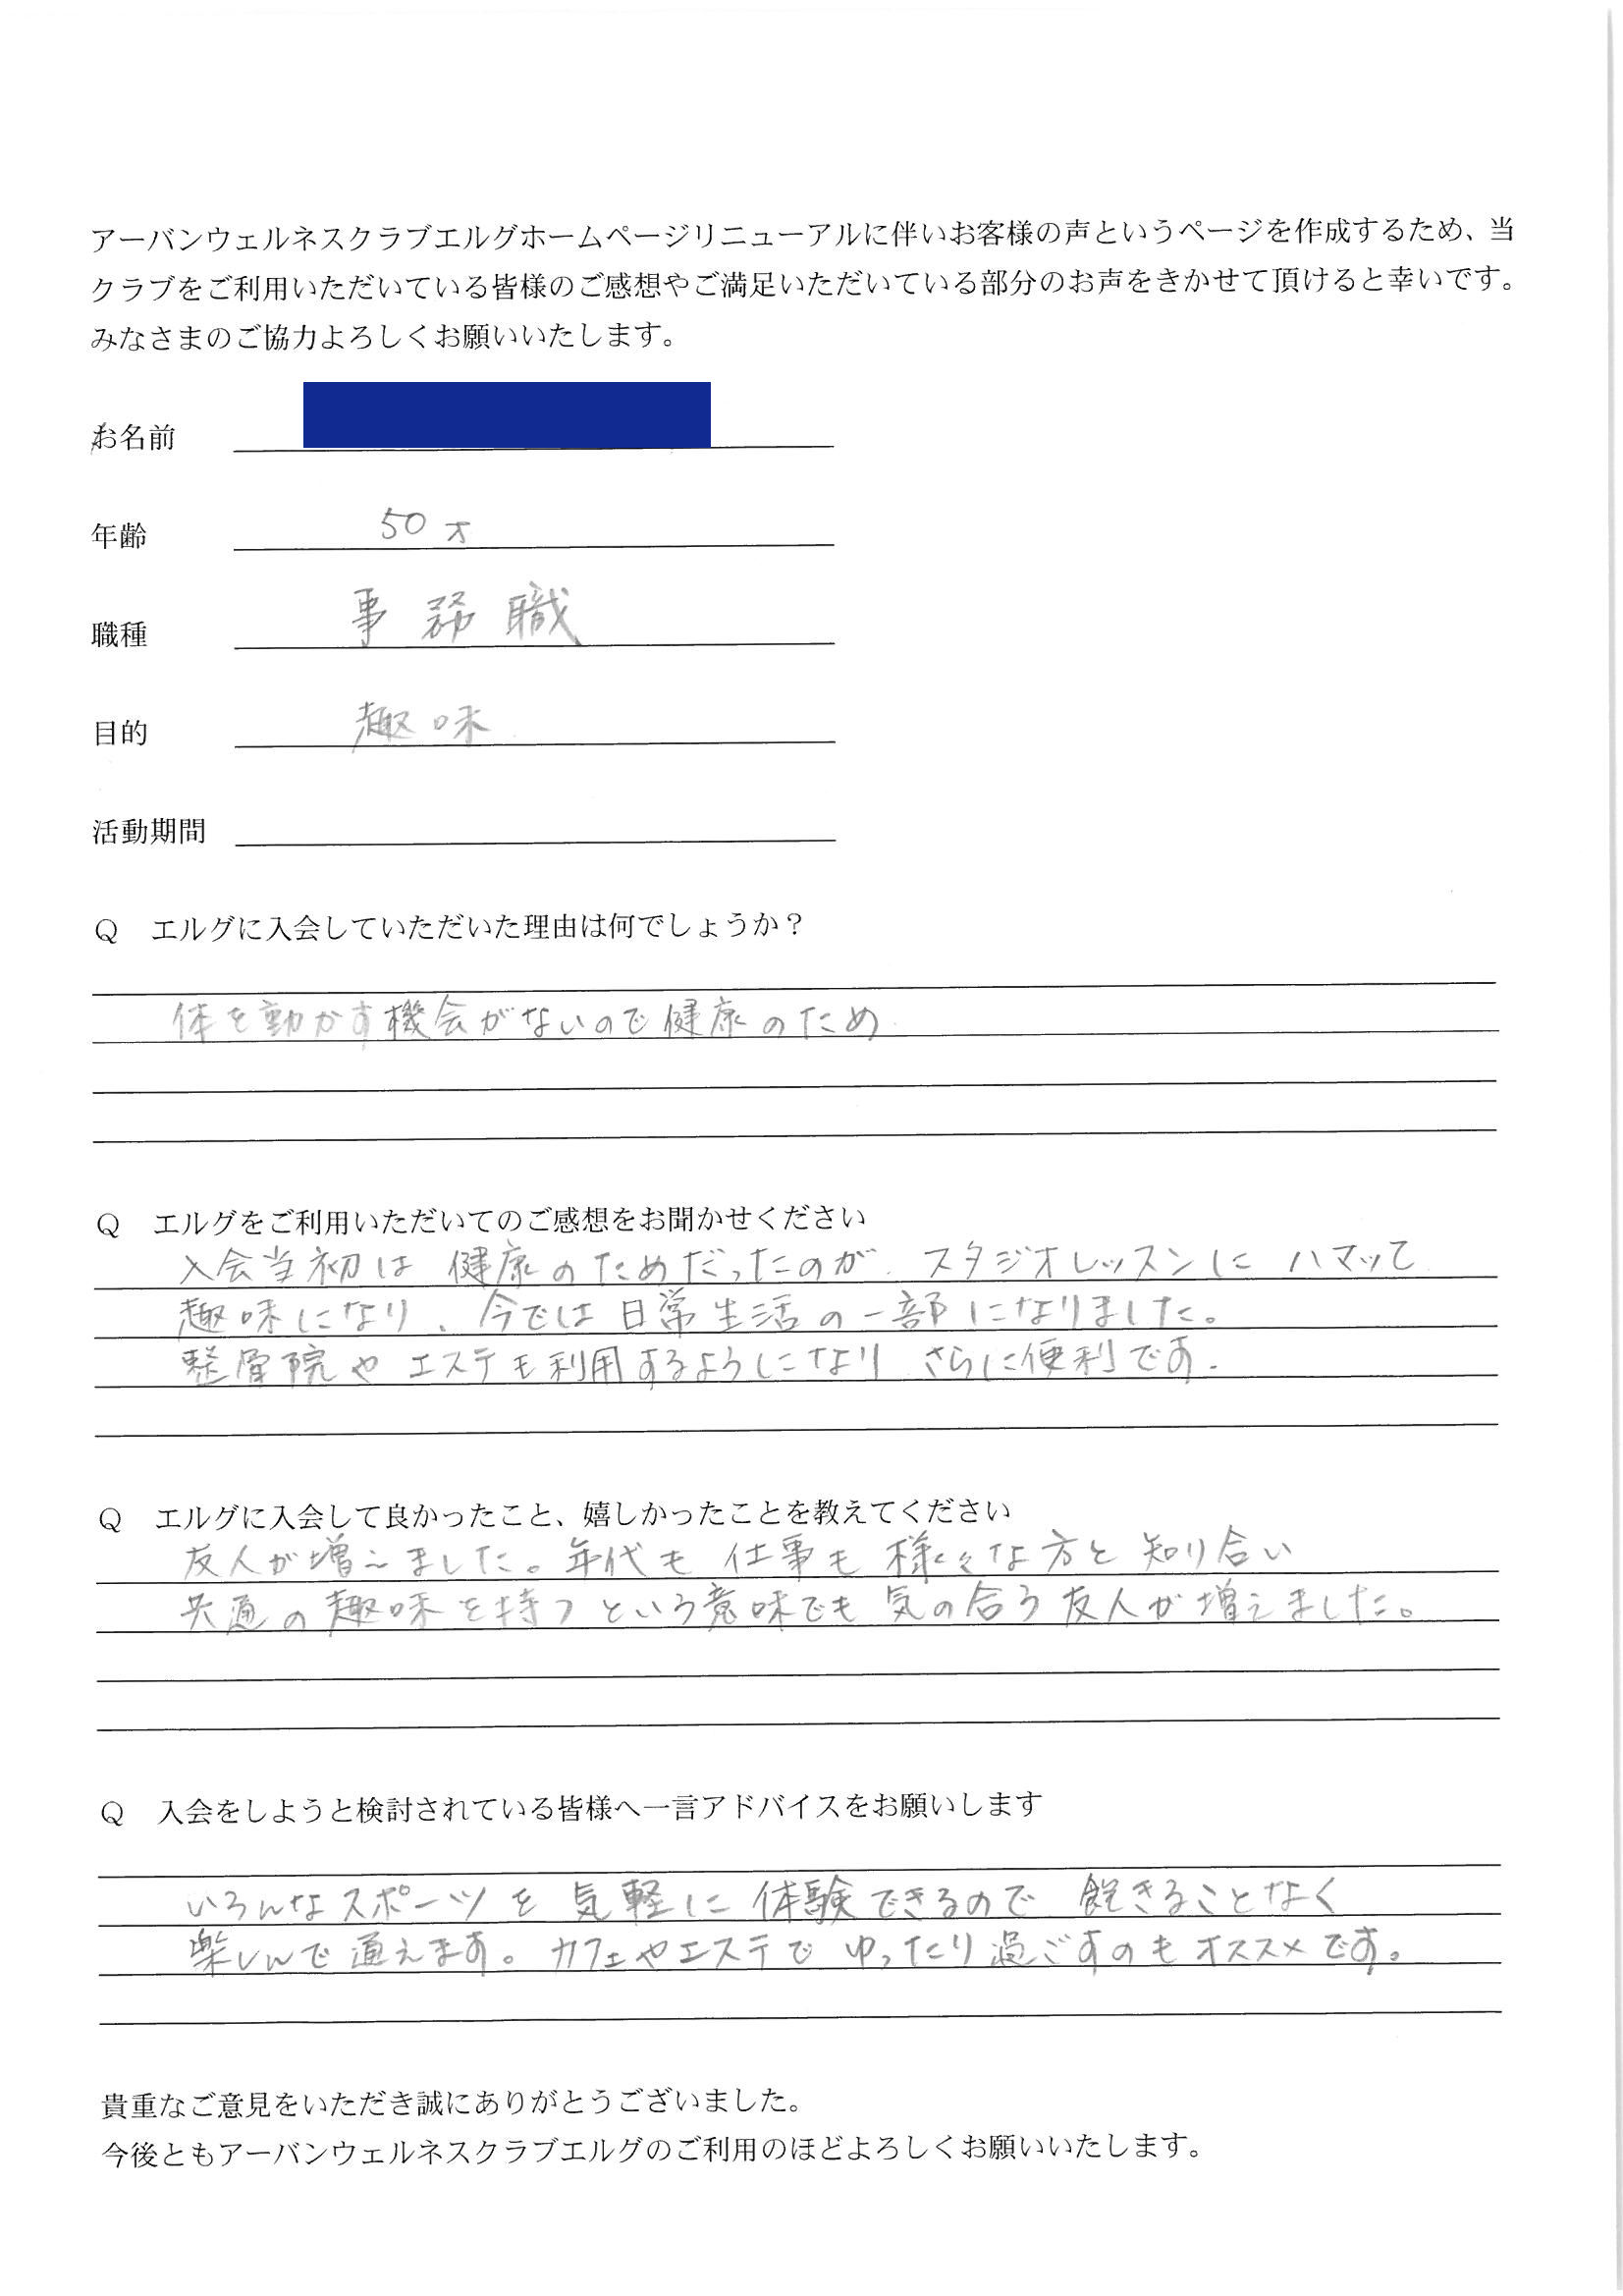 アーバンウェルネスクラブエルグホームページリニューアルに伴いお客様の声というページを作成するため、当
クラブをご利用いただいている皆様のご感想やご満足いただいている部分のお声をきかせて頂けると幸いです。
みなさまのご協力よろしくお願いいたします。
お名前
年齢 50才
職種 事務職
目的 趣味
活動期間
Q エルグに入会していただいた理由は何でしょうか？
体を動かす機会がないので健康のため
Q エルグをご利用いただいてのご感想をお聞かせください
入会当初は 健康のためだったのが、スタジオレッスンに ハマッて
趣味になり、今では日常生活の一部になりました。
整骨院や エステも利用するようになり さらに便利です。
Q エルグに入会して良かったこと、嬉しかったことを教えてください
友人が増えました。年代も 仕事も 様々な方と 知り合い
共通の趣味を持つという意味でも 気の合う友人が増えました。
Q 入会をしようと検討されている皆様へ一言アドバイスをお願いします
いろんなスポーツを 気軽に 体験できるので 飽きることなく
楽しんで通えます。カフェやエステで ゆったり過ごすのもオススメです。
貴重なご意見をいただき誠にありがとうございました。
今後ともアーバンウェルネスクラブエルグのご利用のほどよろしくお願いいたします。